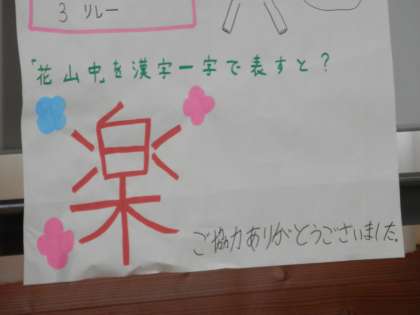 3 リレー
「花山中」を漢字一字で表すと?
楽
ご協力ありがとうございました。